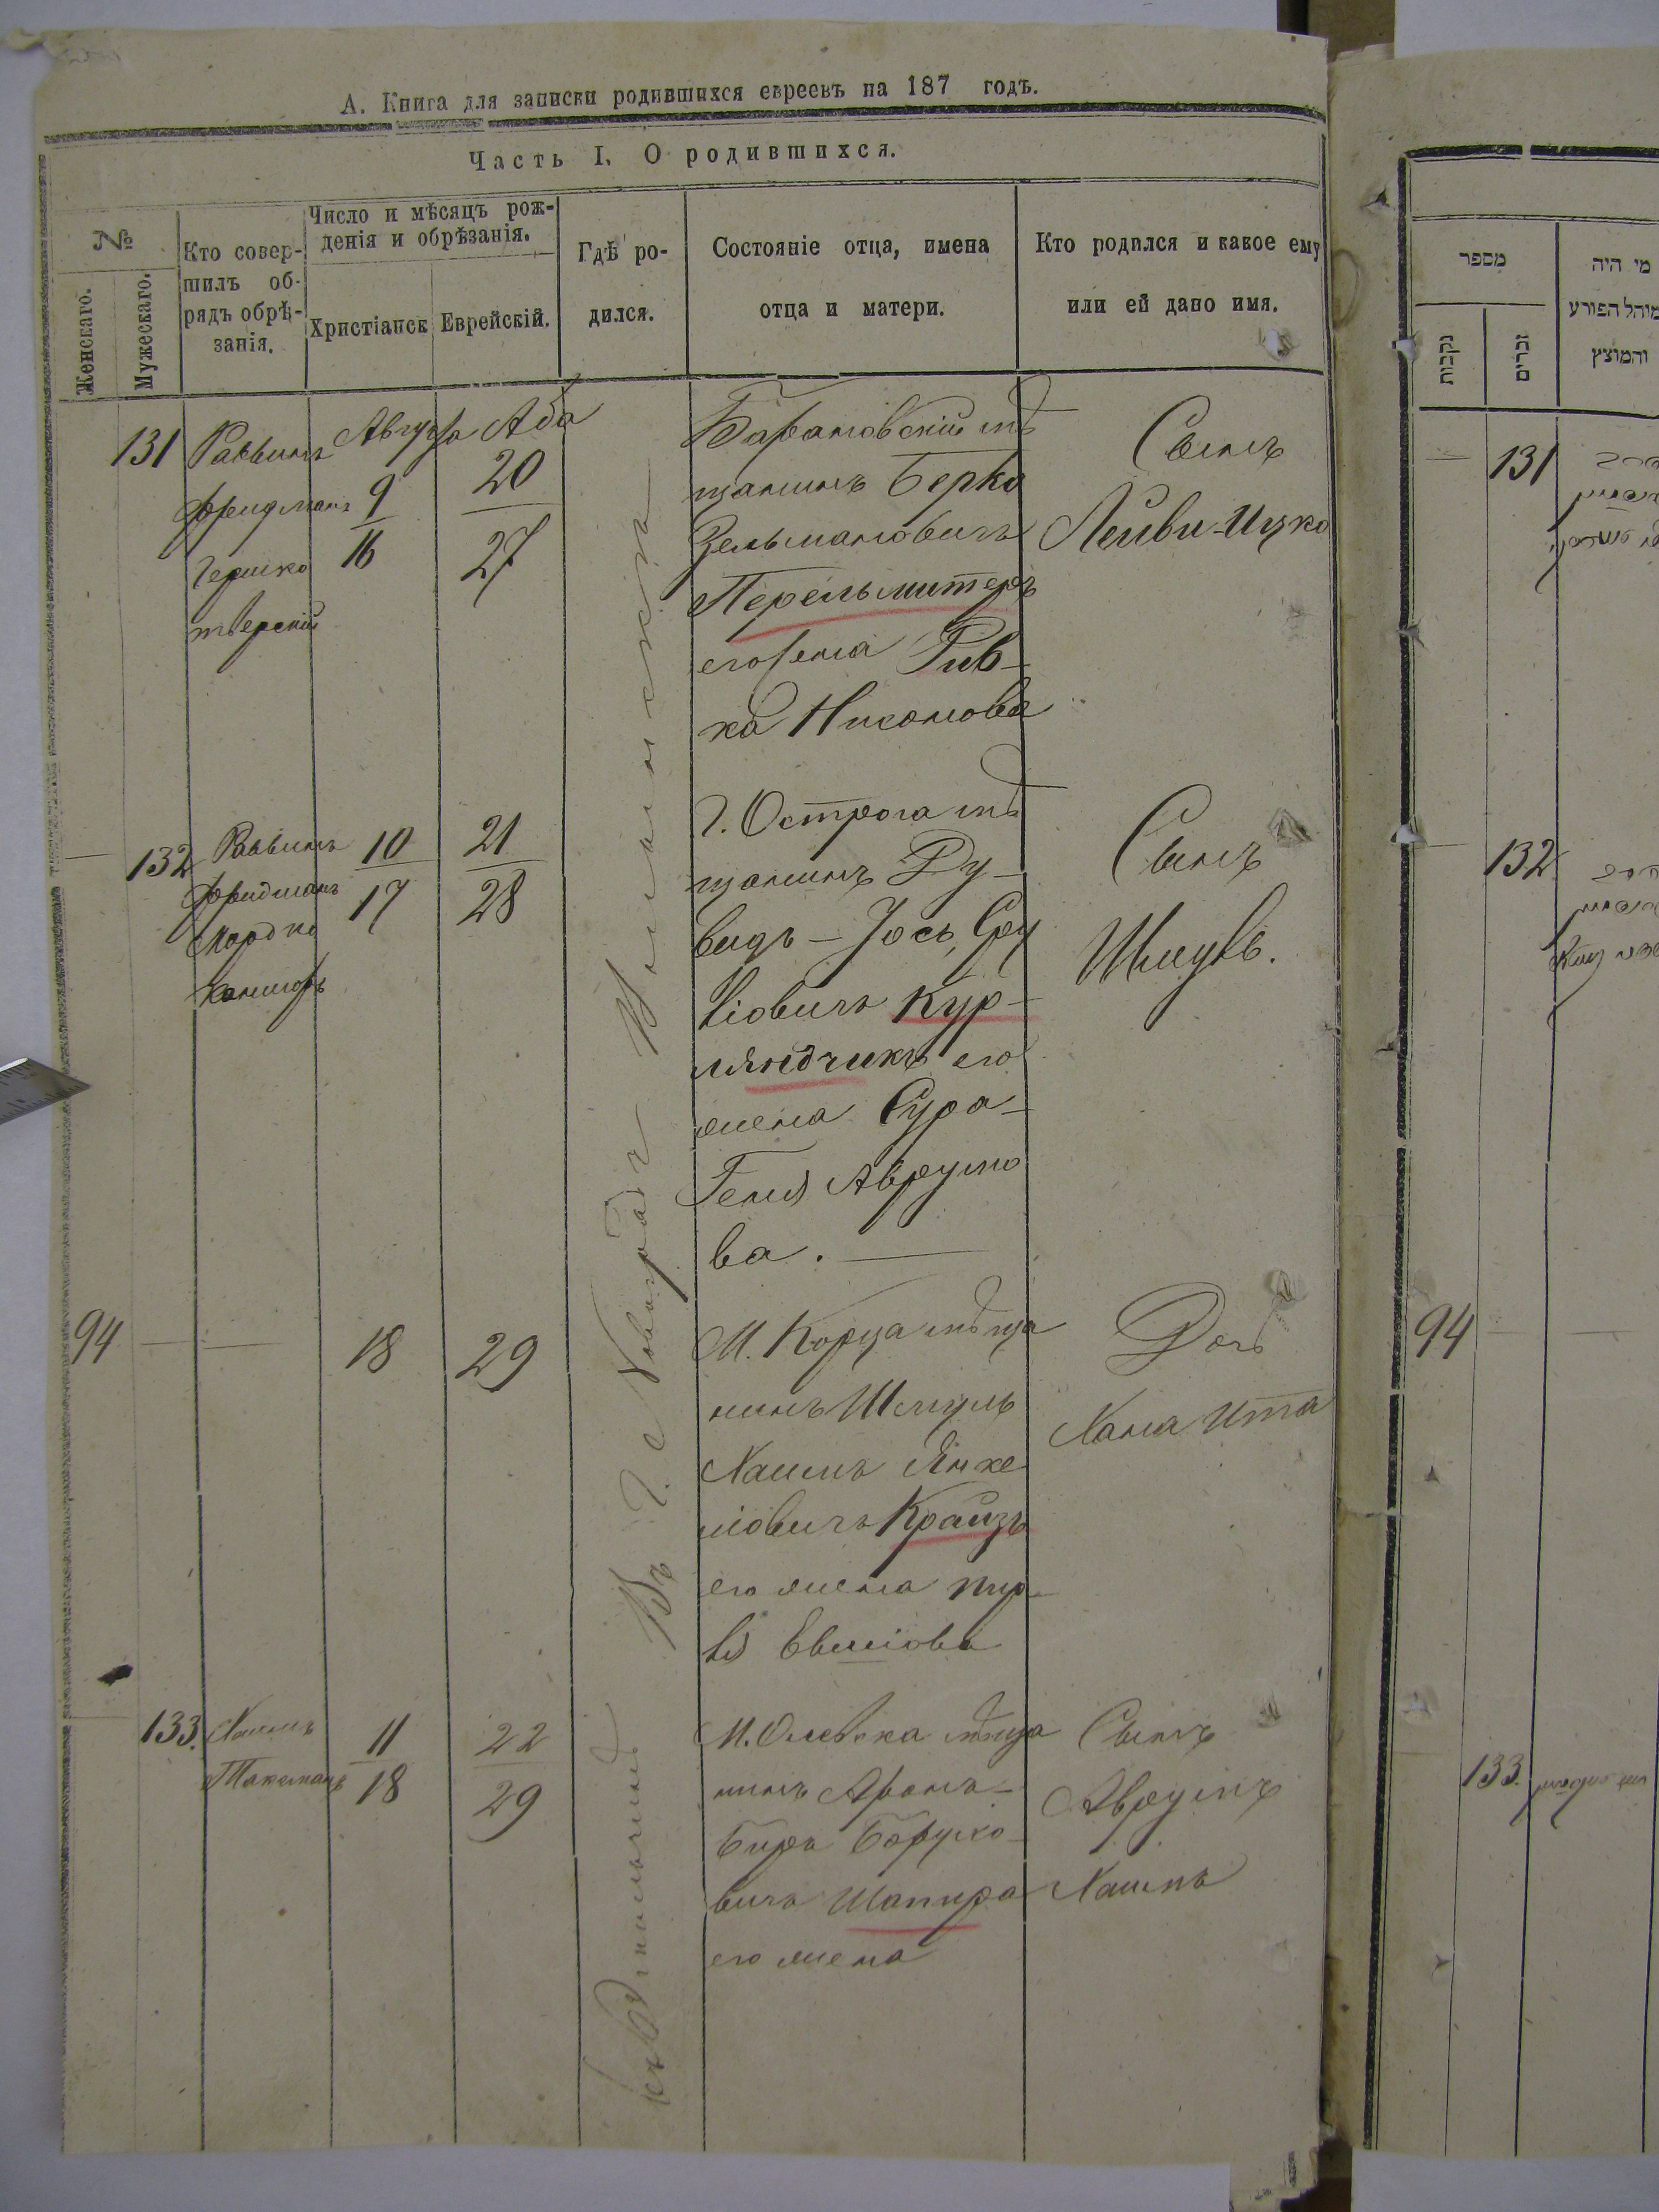 А. Книга для записки родившихся евреевъ на 187 годъ.
Часть I. О родившихся.
№
Женскаго.
Мужескаго.
Кто совер-
шилъ об-
рядъ обрѣ-
занія.
Число и мѣсяцъ рож-
денія и обрѣзанія.
Христіанск
Еврейскій.
Гдѣ ро-
дился.
Состояніе отца, имена
отца и матери.
Кто родился и какое ему
или ей дано имя.
131
Раввинъ
Фридманъ
Гершко
тверский
Августа
9
16
Аба
20
27
Барановскій мѣ
щанинъ Берко
Зельмановичъ
Перельмитеръ
его жена Рив-
ка Нисонова
Сынъ
Лейви-Ицко
132
Раввинъ
Фридманъ
Мордко
10
17
21
28
г. Острога мѣ
щанинъ Ду-
видъ-Іось Сру
ліовичъ Кур-
ляндчикъ его
жена Сура-
Геня Аврумо
ва.
Сынъ
Шмуль.
94
18
29
М. Корца мѣща
нинъ Шмуль
Хаимъ Янке
ліовичъ Крайзъ
его жена Пер-
ля
Дочь
Хана Ита
133.
Хаимъ
Таксманъ
11
18
22
29
М. Олевска мѣща
нинъ Аронъ-
Беръ Борухо-
вичъ Шапира
его жена
Сынъ
Аврумъ
Хаимъ
Въ г. Новоградъ Волынскѣ
מספר
נקבות
זכרים
מי היה
מוהל הפורע
והמוצץ
131
132
94
133.